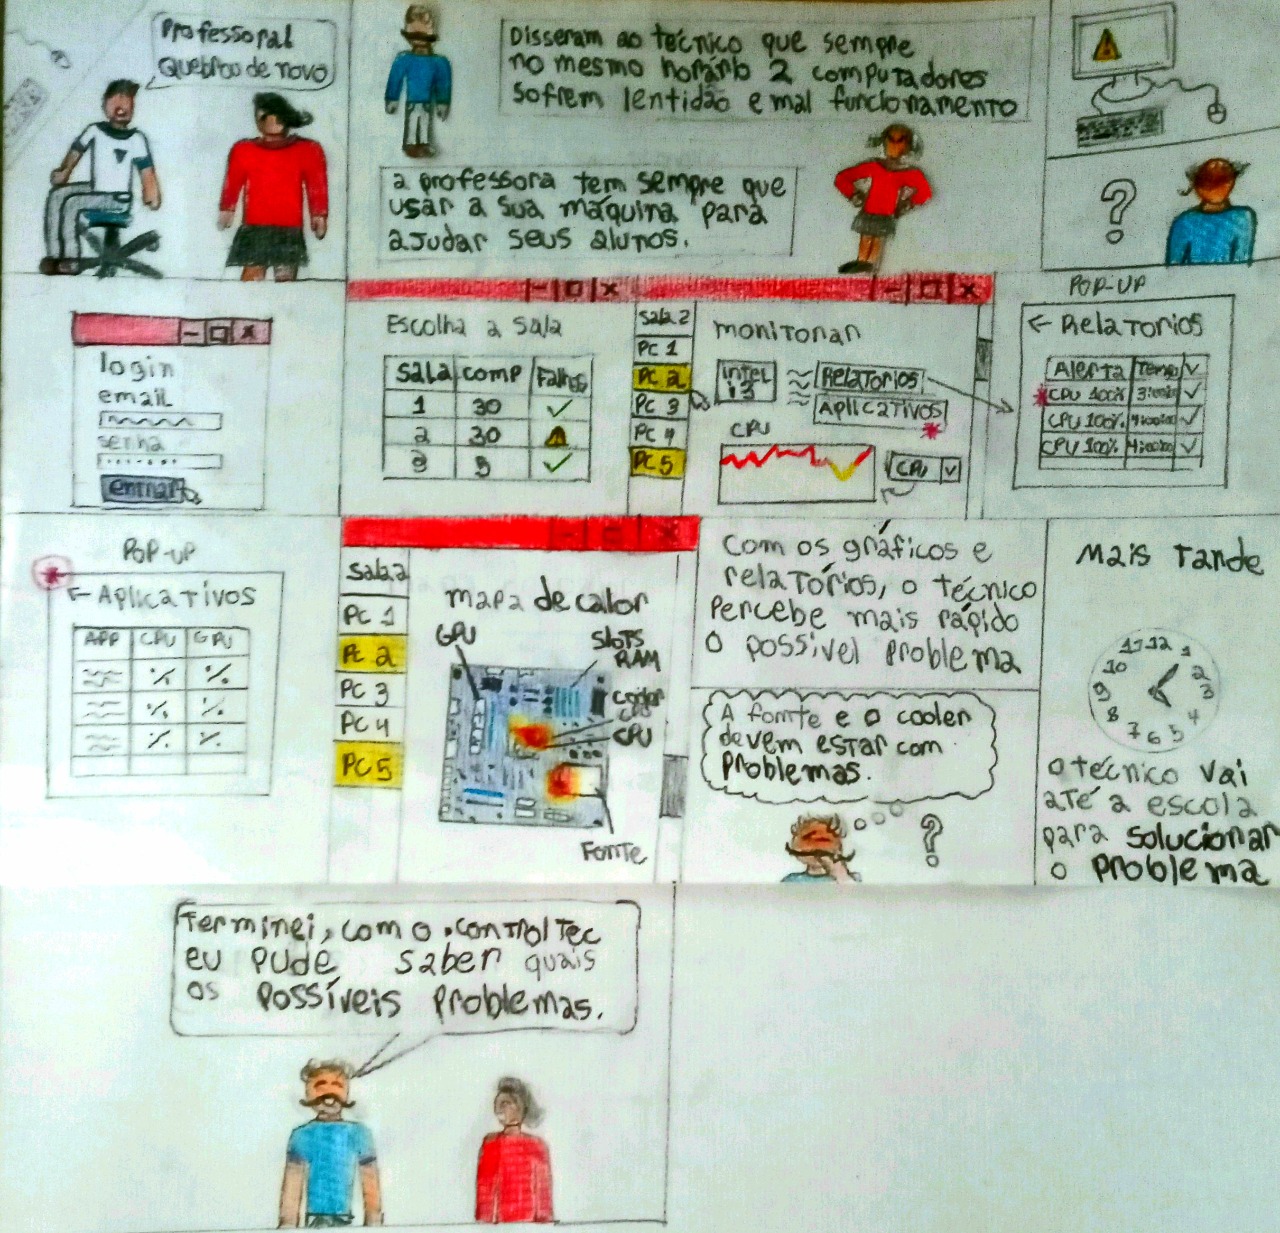 Professora!
Quebrou de novo
Disseram ao técnico que sempre
no mesmo horário 2 computadores
sofrem lentidão e mal funcionamento
a professora tem sempre que
usar a sua máquina para
ajudar seus alunos.
?
login
email
senha
entrar
Escolha a sala
Sala comp Falhas
1 30
2 30
3 5
Sala 2
PC 1
PC 2
PC 3
PC 4
PC 5
monitorar
intel
i3
Relatorios
Aplicativos
CPU
CPU
POP-UP
← Relatorios
Alerta Tempo
CPU 100%
CPU 100%
CPU 100%
POP-UP
← Aplicativos
APP CPU GPU
% %
% %
% %
Sala 2
PC 1
PC 2
PC 3
PC 4
PC 5
mapa de calor
GPU
Slots
RAM
cooler
CPU
CPU
Fonte
Com os gráficos e
relatórios, o técnico
percebe mais rápido
o possível problema
A fonte e o cooler
devem estar com
problemas.
?
mais tarde
11 12 1
10 2
9 3
8 4
7 6 5
o técnico vai
até a escola
para solucionar
o problema
Terminei, com o .controltec
eu pude saber quais
os possíveis problemas.